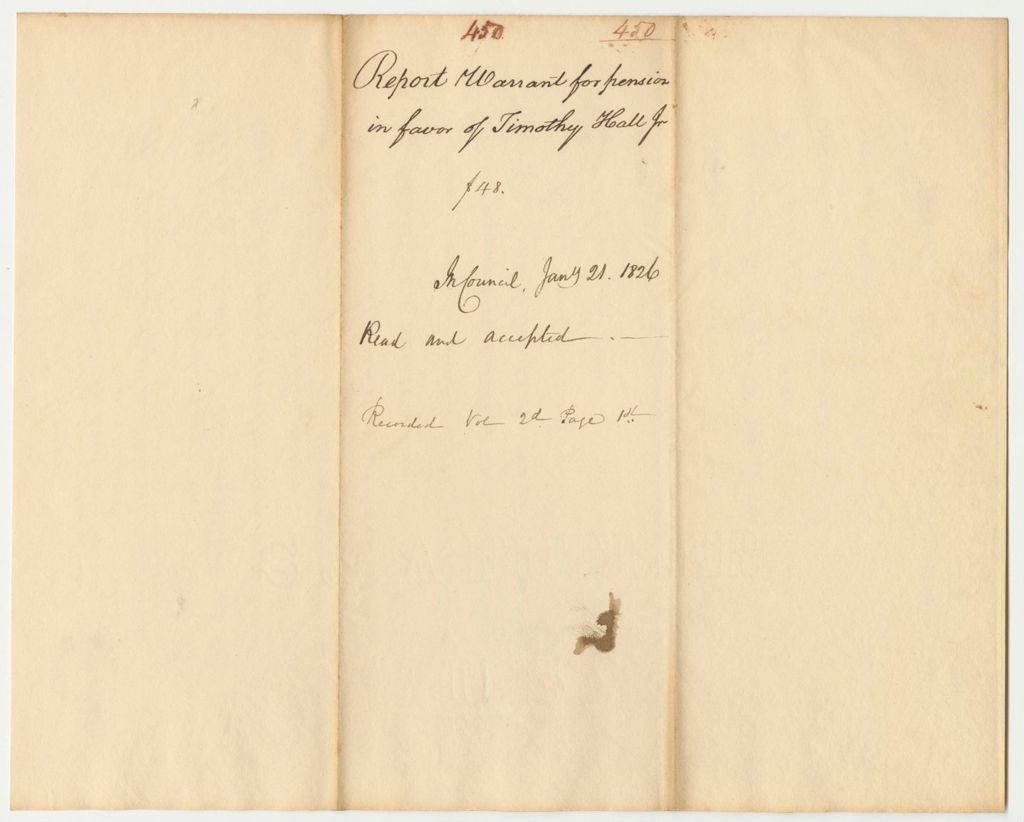 450 450
Report Warrant for pension
in favor of Timothy Hall Jr
$48.
In Council, Jany 21. 1826
Read and accepted . —
Recorded Vol 2d Page 1st